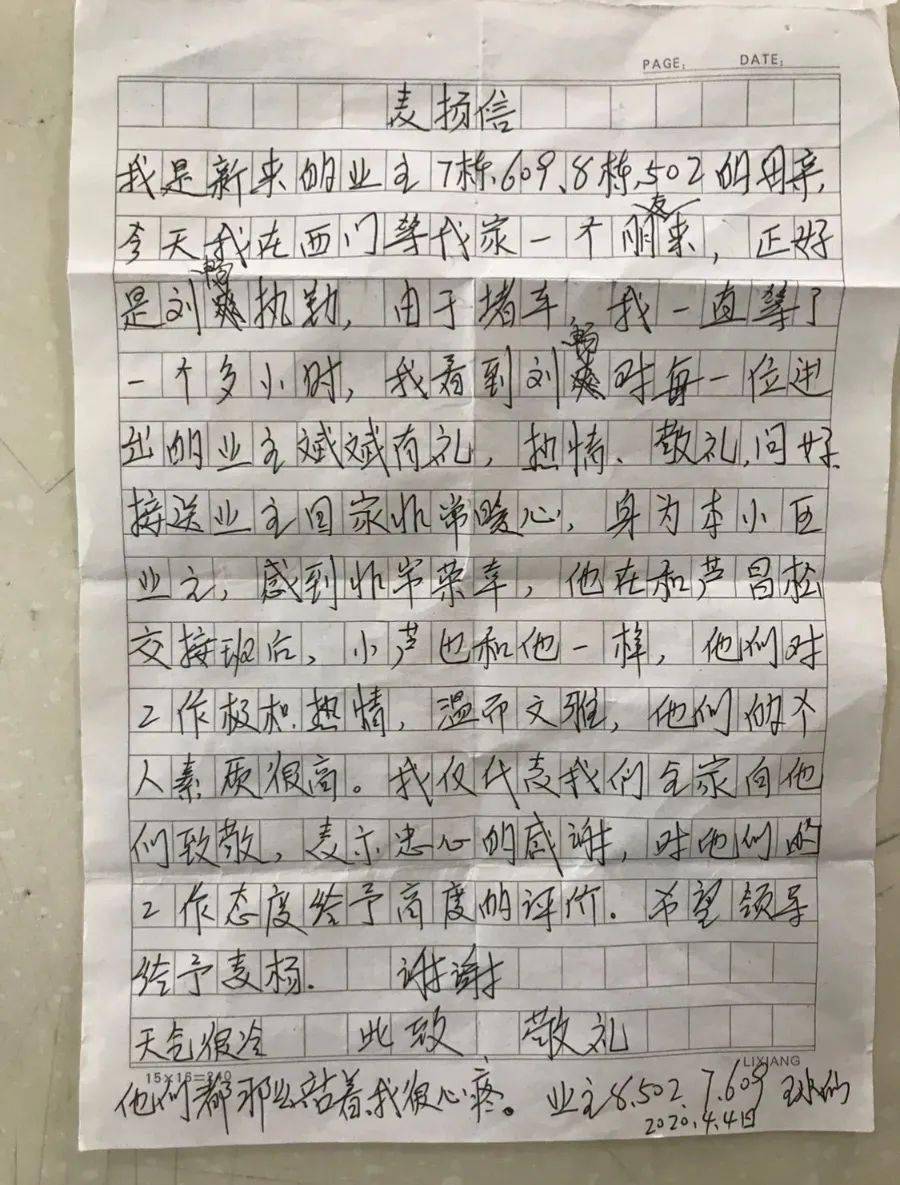 PAGE: DATE:
表扬信
我是新来的业主7栋、609、8栋、502的母亲,
今天我在西门等我家一个朋友来,正好
是刘畅执勤,由于堵车,我一直等了
一个多小时,我看到刘畅对每一位进
出的业主斌斌有礼,热情、敬礼,问好
接送业主回家非常暖心,身为本小区
业主,感到非常荣幸,他在和芦昌松
交接班后,小芦也和他一样,他们对
工作极积热情,温而文雅,他们的个
人素质很高。我仅代表我们全家向他
们致敬,表示忠心的感谢,对他们的
工作态度给予高度的评价.希望领导
给予表杨. 谢谢
天气很冷 此致 敬礼
15×16=240 LIXIANG
他们都那么站着,我很心疼。业主8.502、7.609
2020.4.4日